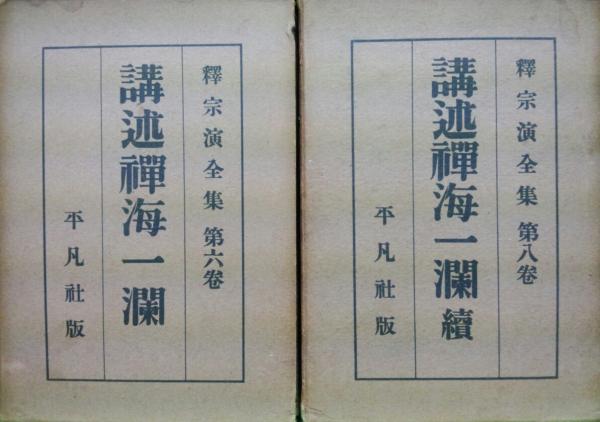 釋宗演全集 第六卷
講述禪海一瀾
平凡社版
釋宗演全集 第八卷
講述禪海一瀾 續
平凡社版